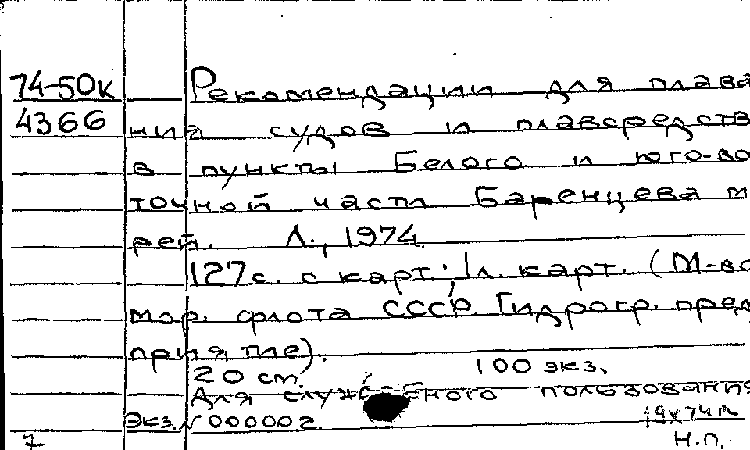 74-50к Рекомендации для плава
4366 ния судов и плавсредств
в пункты Белого и юго-во
точной части Баренцева м
рей. Л., 1974.
127с. с карт.; 1л. карт. (М-во
мор. флота СССР. Гидрогр. пред
приятие).
20 см. 100 экз.
Для служебного пользования
Экз. 000002
7 Н.П.